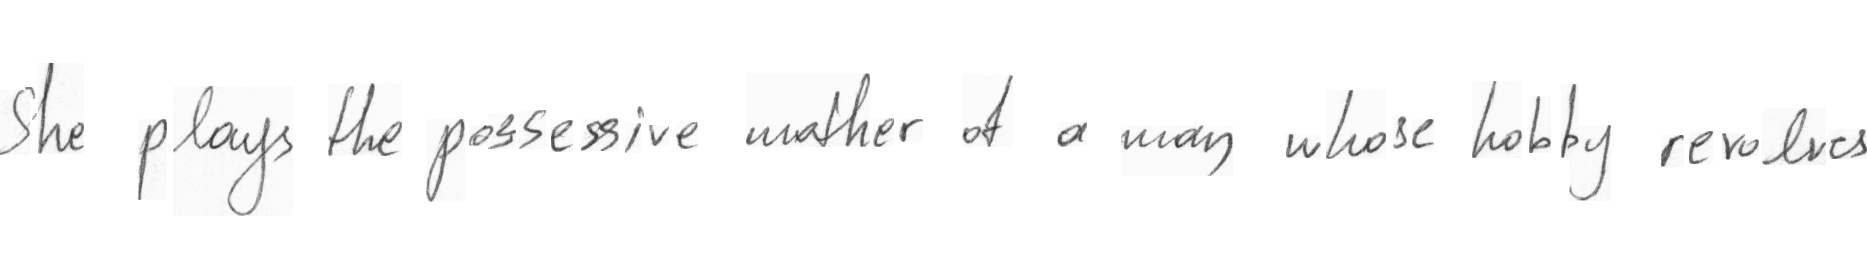 She plays the possessive mother of a man whose hobby revolves